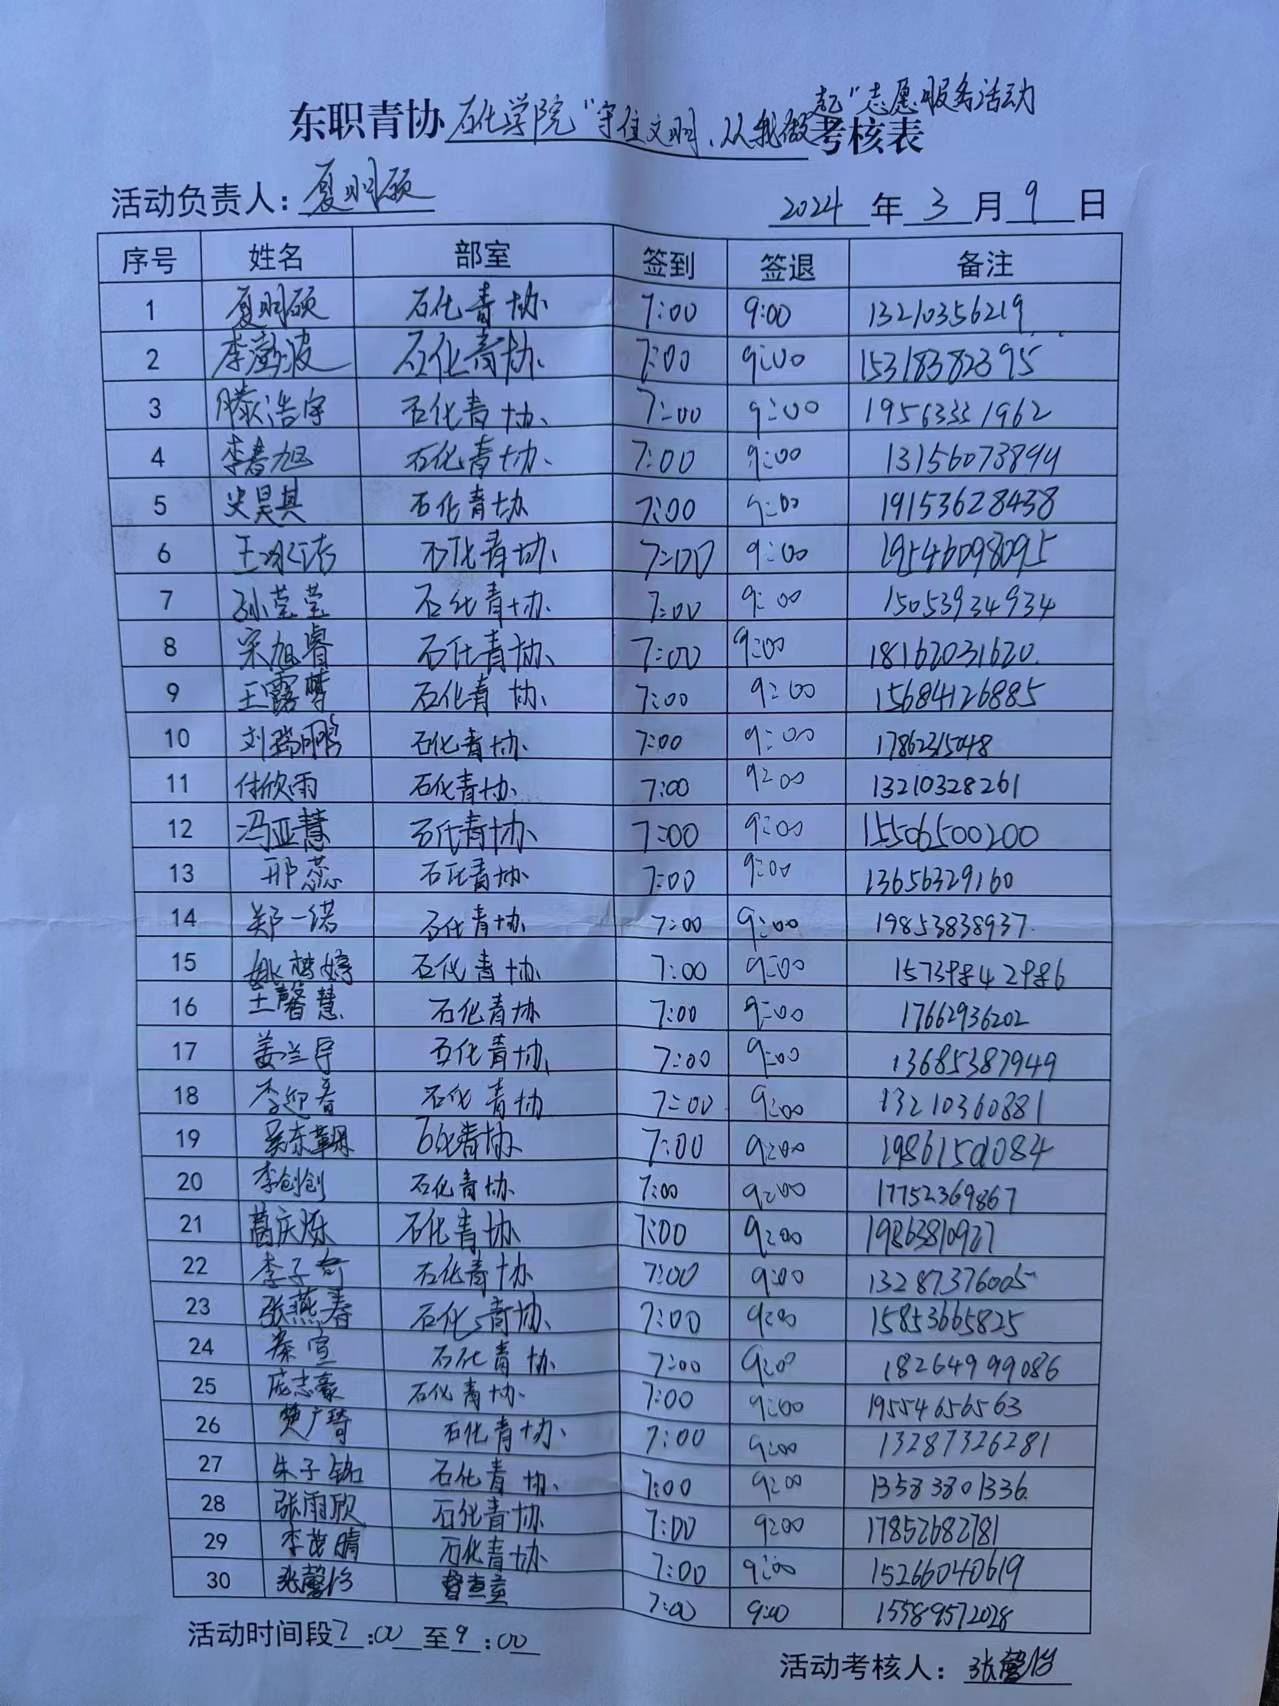 起"志愿服务活动
东职青协 石化学院"守住文明、从我做 考核表
活动负责人: 夏明硕 2024 年 3 月 9 日
序号 姓名 部室 签到 签退 备注
1 夏明硕 石化青协 7:00 9:00 13210356219
2 李澎波 石化青协 7:00 9:00 15318382395
3 滕浩宇 石化青协 7:00 9:00 19563331962
4 李春旭 石化青协 7:00 9:00 13156073894
5 史昊其 石化青协 7:00 9:00 19153628438
6 王冰洁 石化青协 7:00 9:00 19546098095
7 孙莹莹 石化青协 7:00 9:00 15053934934
8 宋旭睿 石化青协 7:00 9:00 18162031620
9 王露梦 石化青协 7:00 9:00 15684126885
10 刘瑞鹏 石化青协 7:00 9:00 17862315048
11 付欣雨 石化青协 7:00 9:00 13210328261
12 冯亚慧 石化青协 7:00 9:00 15506500200
13 邢蕊 石化青协 7:00 9:00 13656329160
14 郑一诺 石化青协 7:00 9:00 19853838937
15 姚梦婷 石化青协 7:00 9:00 15739842986
16 王馨慧 石化青协 7:00 9:00 17662936202
17 姜兰宇 石化青协 7:00 9:00 13685387949
18 李迎春 石化青协 7:00 9:00 13210360881
19 石化青协 7:00 9:00
20 李创创 石化青协 7:00 9:00 17752369867
21 葛庆烁 石化青协 7:00 9:00 19863810927
22 李子奇 石化青协 7:00 9:00 13287376005
23 张燕春 石化青协 7:00 9:00 15853665825
24 秦宣 石化青协 7:00 9:00 18264999086
25 庞志豪 石化青协 7:00 9:00 19554656563
26 樊广琦 石化青协 7:00 9:00 13287326281
27 朱子铭 石化青协 7:00 9:00 13583801336
28 张雨欣 石化青协 7:00 9:00 17852682781
29 李茂晴 石化青协 7:00 9:00 15266040619
30 张馨怡 督查室 7:00 9:00 15589572028
活动时间段7:00至9:00
活动考核人: 张馨怡